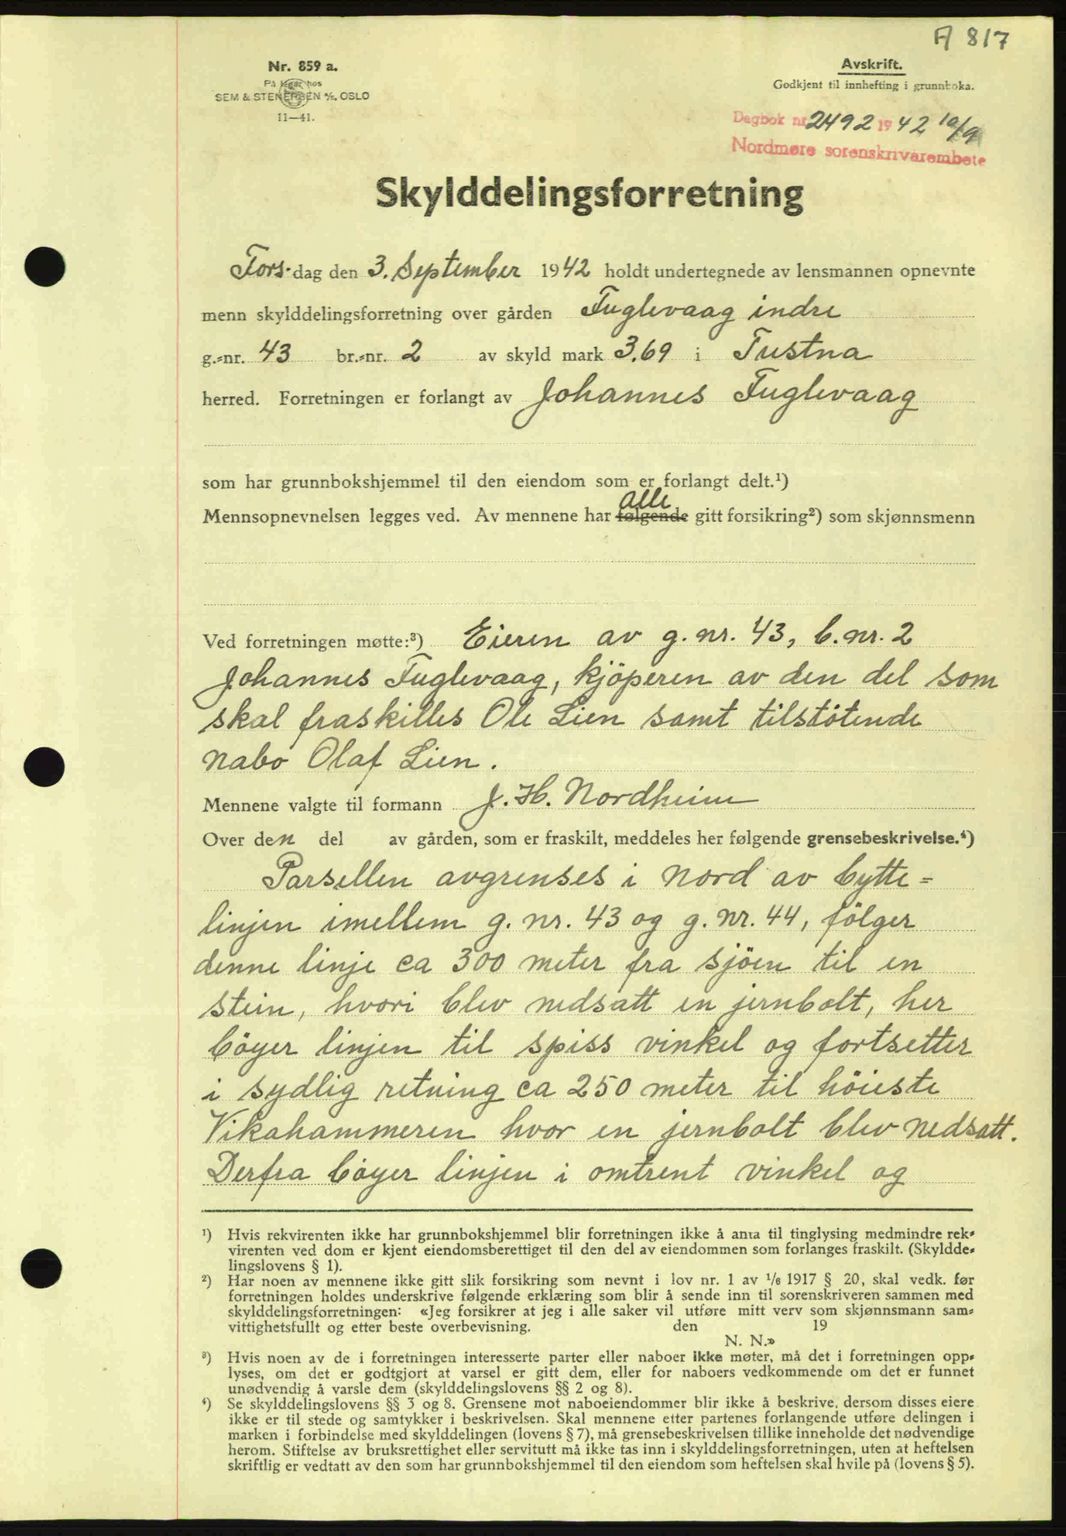 A 817
Nr. 859 a.
På lager hos
SEM & STENERSEN A/S. OSLO
11—41.
Avskrift.
Godkjent til innhefting i grunnboka.
Dagbok nr 2492 1942 10/9
Nordmøre sorenskrivarembete
Skylddelingsforretning
Forsdag den 3. September 1942 holdt undertegnede av lensmannen opnevnte
menn skylddelingsforretning over gården Fuglevaag indre
g.-nr. 43 br.-nr. 2 av skyld mark 3.69 i Tustna
herred. Forretningen er forlangt av Johannes Fuglevaag
som har grunnbokshjemmel til den eiendom som er forlangt delt.¹)
alle
Mennsopnevnelsen legges ved. Av mennene har følgende gitt forsikring²) som skjønnsmenn
Ved forretningen møtte:³) Eieren av g. nr. 43, b. nr. 2
Johannes Fuglevaag, kjöperen av den del som
skal fraskilles Ole Lien samt tilstötende
nabo Olaf Lien.
Mennene valgte til formann J. H. Nordheim
Over den del av gården, som er fraskilt, meddeles her følgende grensebeskrivelse.⁴)
Parsellen avgrenses i nord av bytte=
linjen imellem g. nr. 43 og g. nr. 44, fölger
denne linje ca 300 meter fra sjöen til en
stein, hvori blev nedsatt en jernbolt, her
böyer linjen til spiss vinkel og fortsetter
i sydlig retning ca 250 meter til höieste
Vikahammeren hvor en jernbolt blev nedsatt.
Derfra böyer linjen i omtrent vinkel og
¹) Hvis rekvirenten ikke har grunnbokshjemmel blir forretningen ikke å anta til tinglysing medmindre rek-
virenten ved dom er kjent eiendomsberettiget til den del av eiendommen som forlanges fraskilt. (Skyldde-
lingslovens § 1).
²) Har noen av mennene ikke gitt slik forsikring som nevnt i lov nr. 1 av 1/6 1917 § 20, skal vedk. før
forretningen holdes underskrive følgende erklæring som blir å sende inn til sorenskriveren sammen med
skylddelingsforretningen: «Jeg forsikrer at jeg i alle saker vil utføre mitt verv som skjønnsmann sam-
vittighetsfullt og etter beste overbevisning. den 19
N. N.»
³) Hvis noen av de i forretningen interesserte parter eller naboer ikke møter, må det i forretningen opp-
lyses, om det er godtgjort at varsel er gitt dem, eller for naboers vedkommende om det er funnet
unødvendig å varsle dem (skylddelingslovens §§ 2 og 8).
⁴) Se skylddelingslovens §§ 3 og 8. Grensene mot naboeiendommer blir ikke å beskrive, dersom disses eiere
ikke er til stede og samtykker i beskrivelsen. Skal mennene etter partenes forlangende utføre delingen i
marken i forbindelse med skylddelingen (lovens § 7), må grensebeskrivelsen tillike inneholde det nødvendige
herom. Stiftelse av bruksrettighet eller servitutt må ikke tas inn i skylddelingsforretningen, uten at heftelsen
skriftlig er vedtatt av den som har grunnbokshjemmel til den eiendom som heftelsen skal hvile på (lovens § 5).